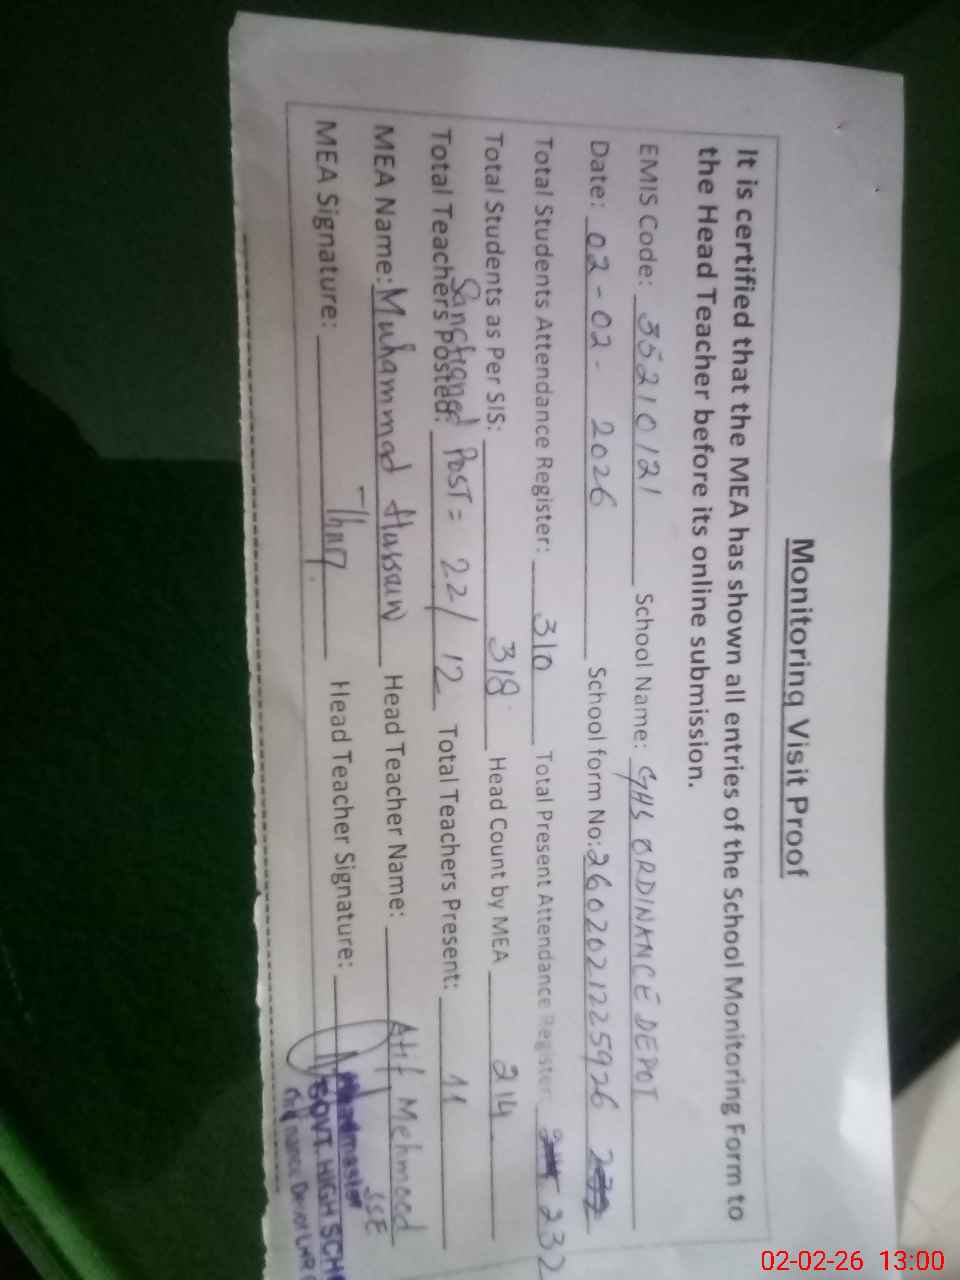 Monitoring Visit Proof
It is certified that the MEA has shown all entries of the School Monitoring Form to
the Head Teacher before its online submission.
EMIS Code: 35210121 School Name: GHS ORDINANCE DEPOT
Date: 02-02-2026 School form No: 2602021225926
Total Students Attendance Register: 310 Total Present Attendance Register 232
Total Students as Per SIS: 318 Head Count by MEA 214
Sanctioned Post = 22/12
Total Teachers Posted: Total Teachers Present: 11
MEA Name: Muhammad Hussain Head Teacher Name: Atif Mehmood
SSE
MEA Signature: Head Teacher Signature:
Headmaster
GOVT. HIGH SCH
Depot LHR
02-02-26 13:00